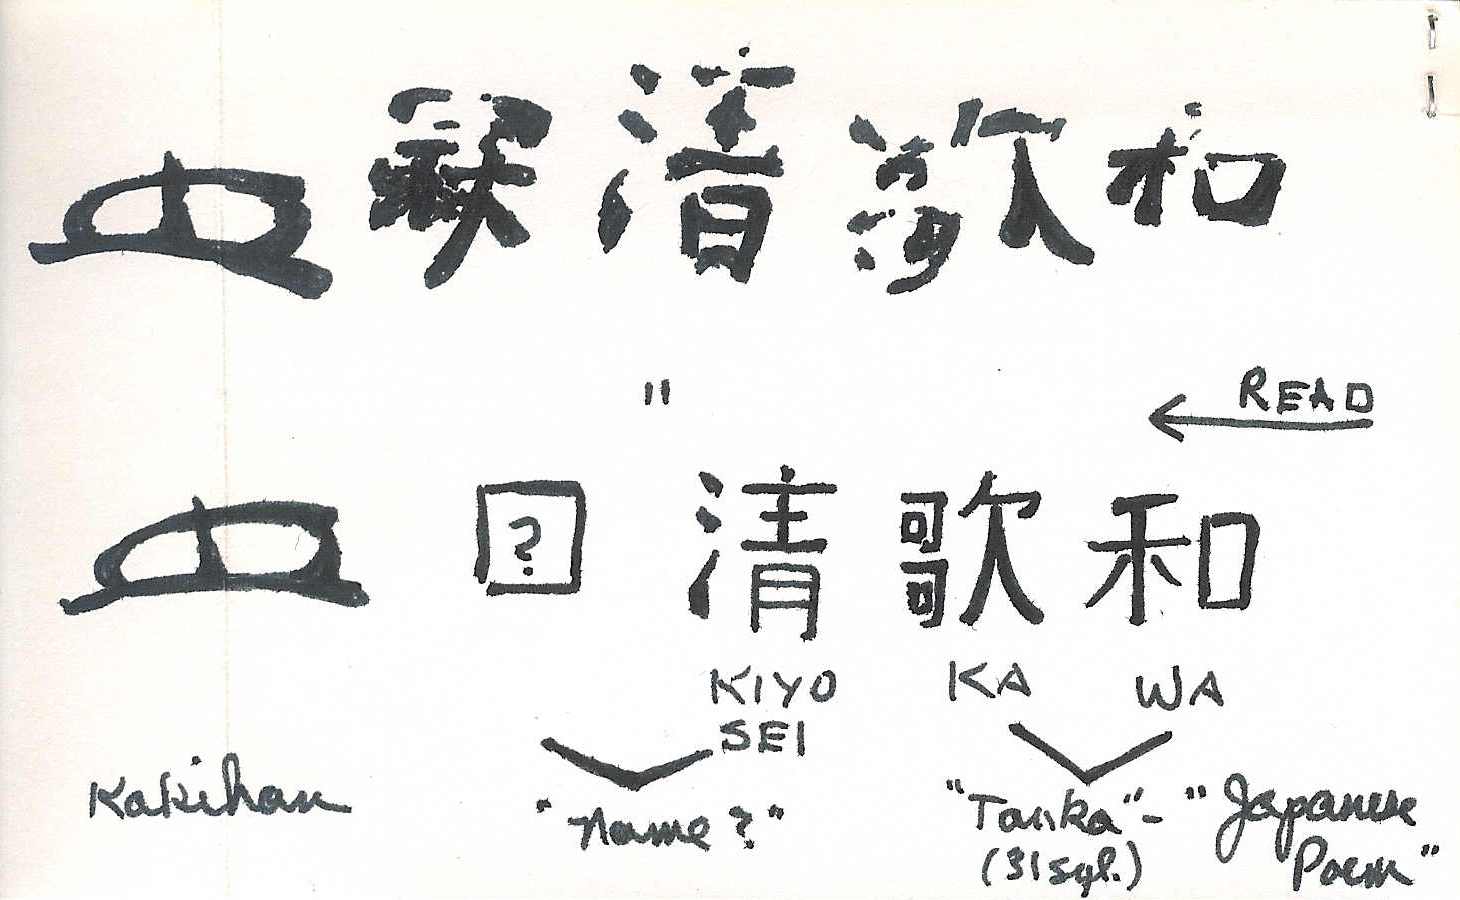 和歌清
"
READ
和歌清?
KIYO KA WA
SEI
Kakihan "Name?" "Tanka" - "Japanese
(31 syl.) Poem"